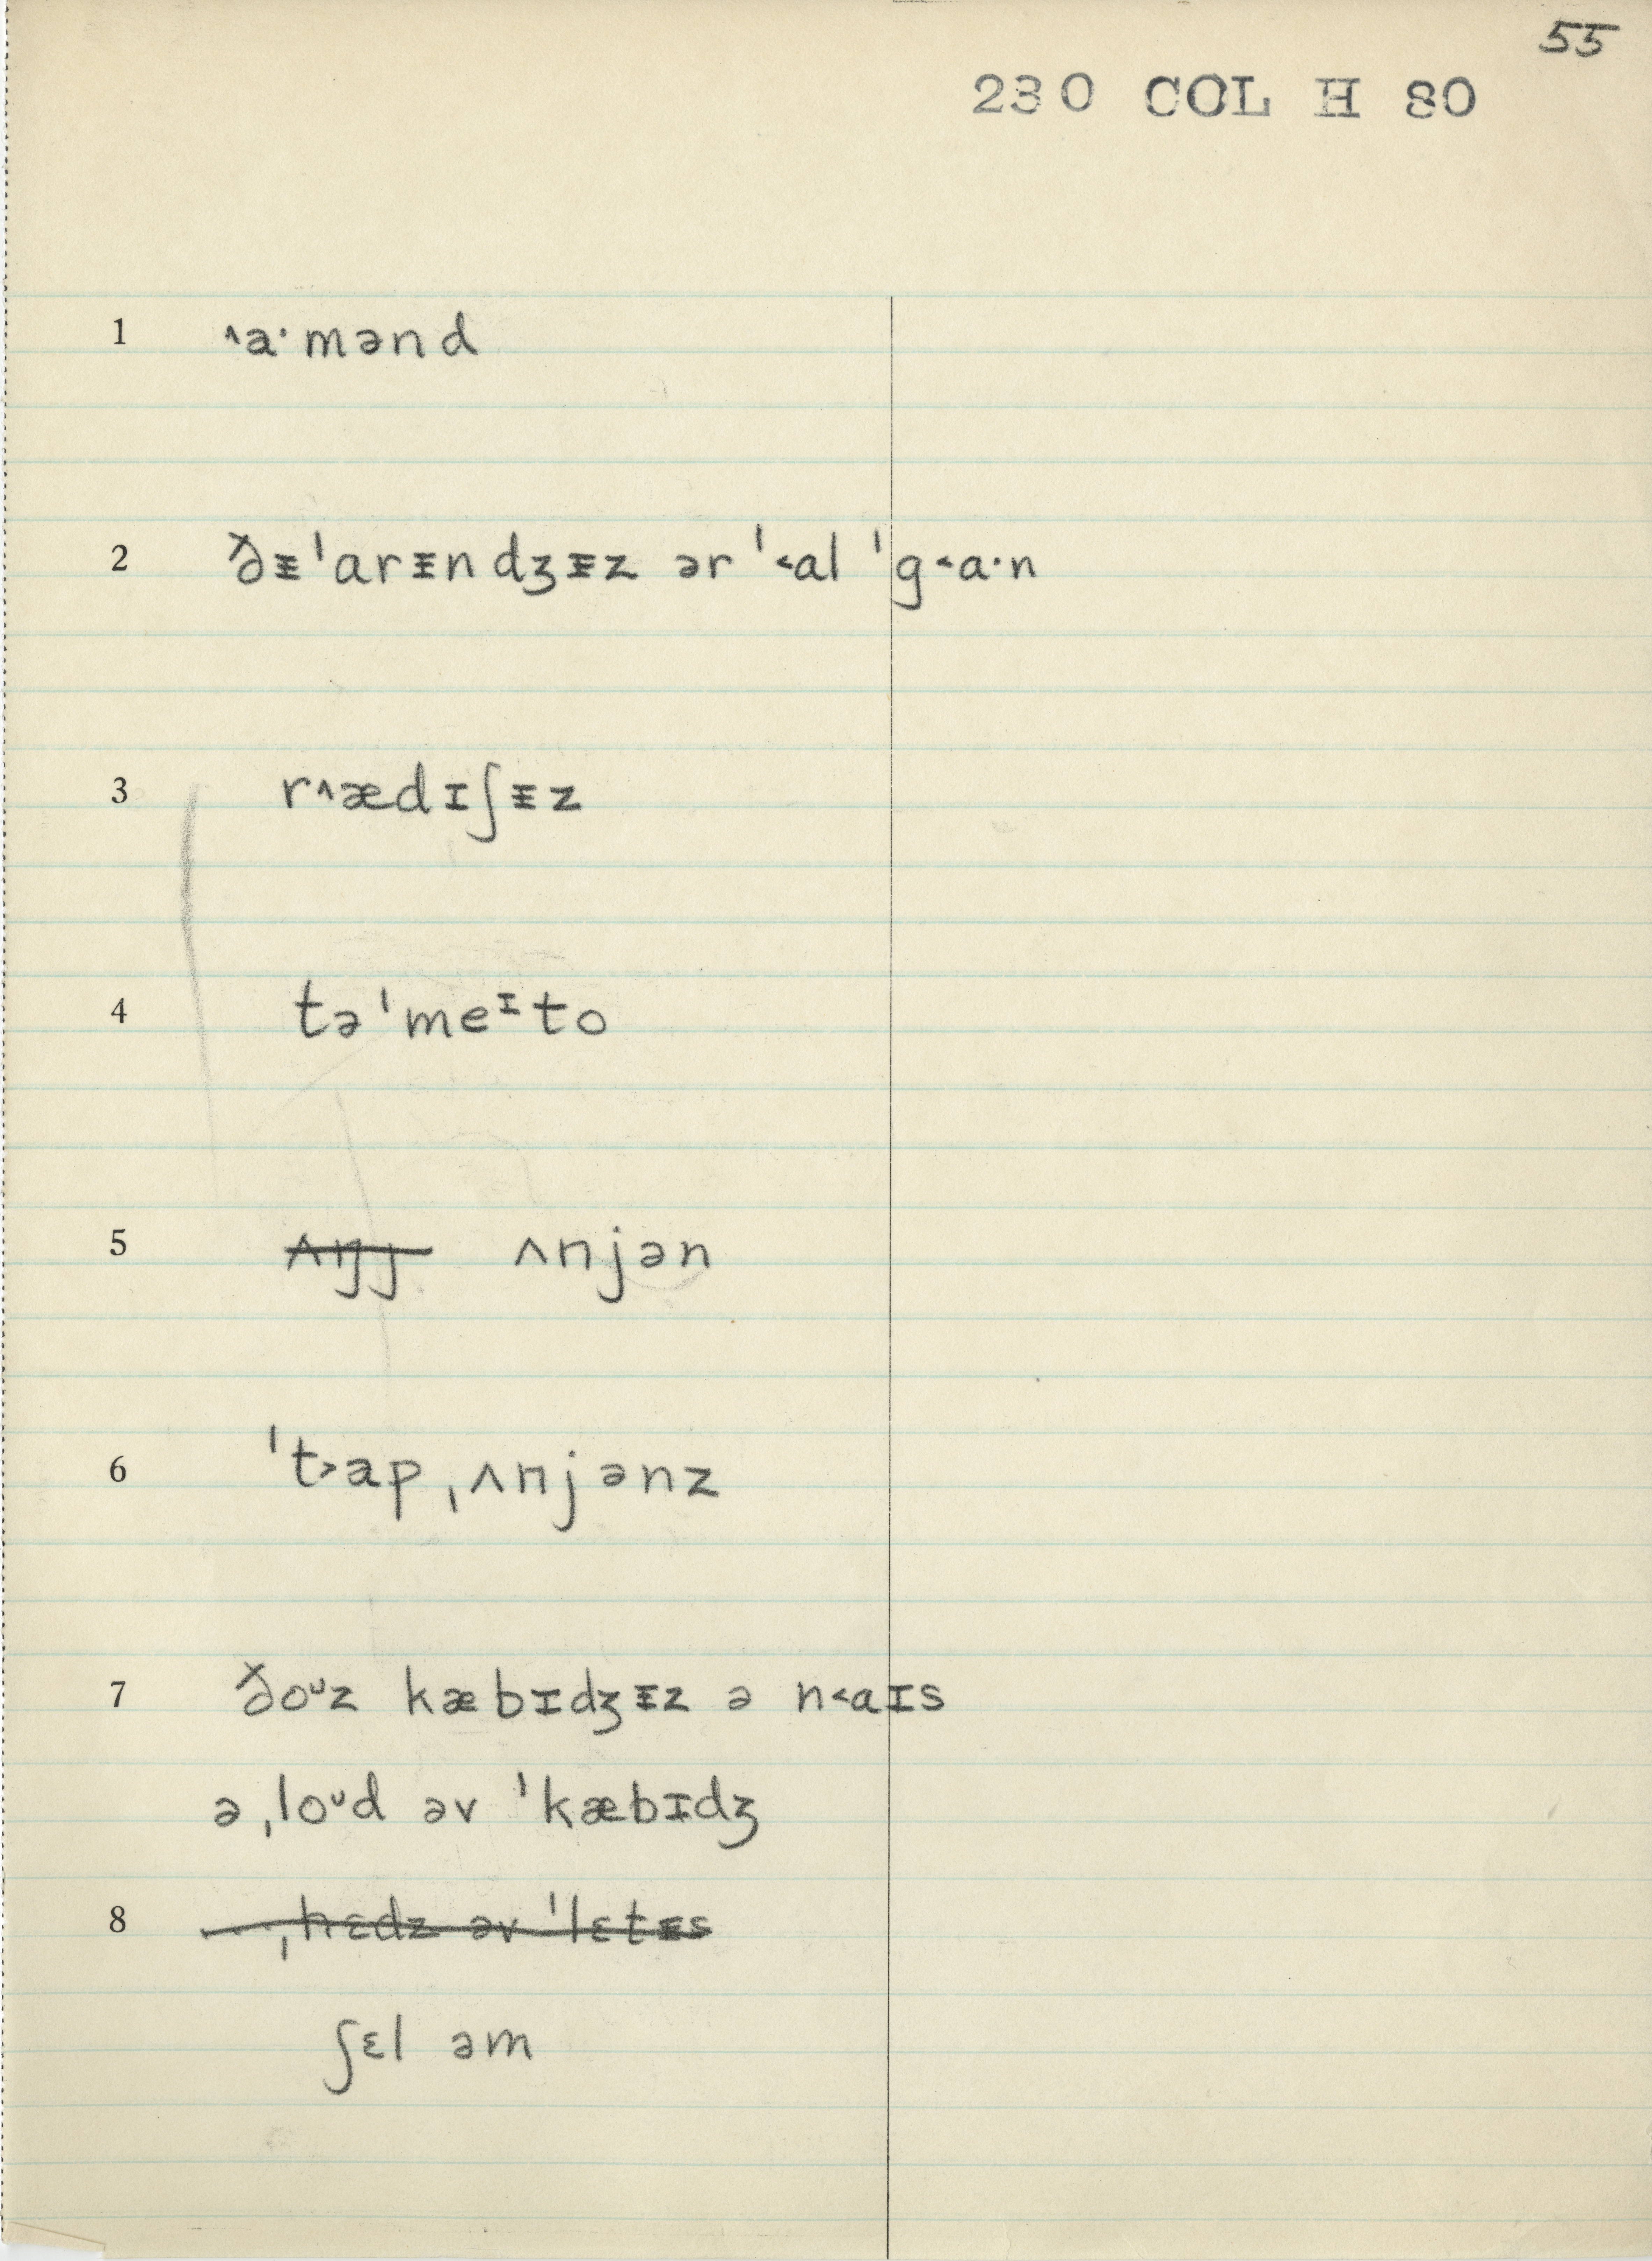 55
230 COL H 80
1 ˄a·mənd
2 ðᵻˈarᵻndʒᵻz ərˈ˂al ˈg˂a·n
3 r˄ædɪʃᵻz
4 təˈmeᶦto
5 ʌŋj ʌnjən
6 ˈt˃apˌʌnjənz
7 ðoᶷz kæbɪdʒᵻz ə n˂aɪs
əˌloᶷd əv ˈkæbɪdʒ
8 ˌhɛdz əv ˈlɛtᵻs
ʃɛl əm